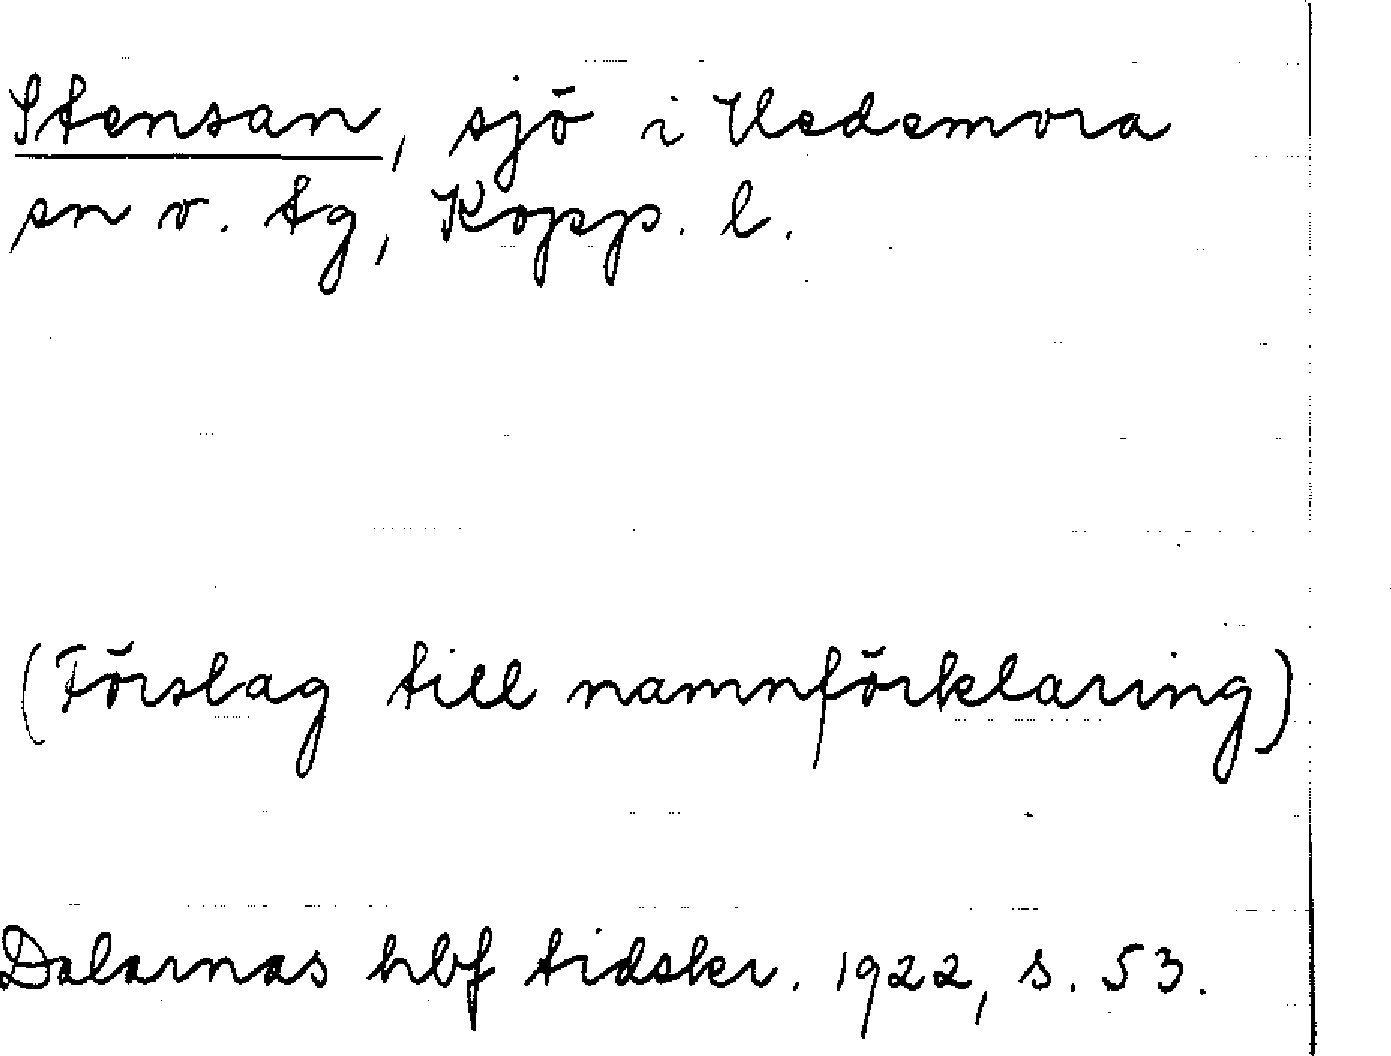 Stensan, sjö i Hedemora
sn o. tg, Kopp. l.
(Förslag till namnförklaring)
Dalarnas hbf tidskr. 1922, s. 53.